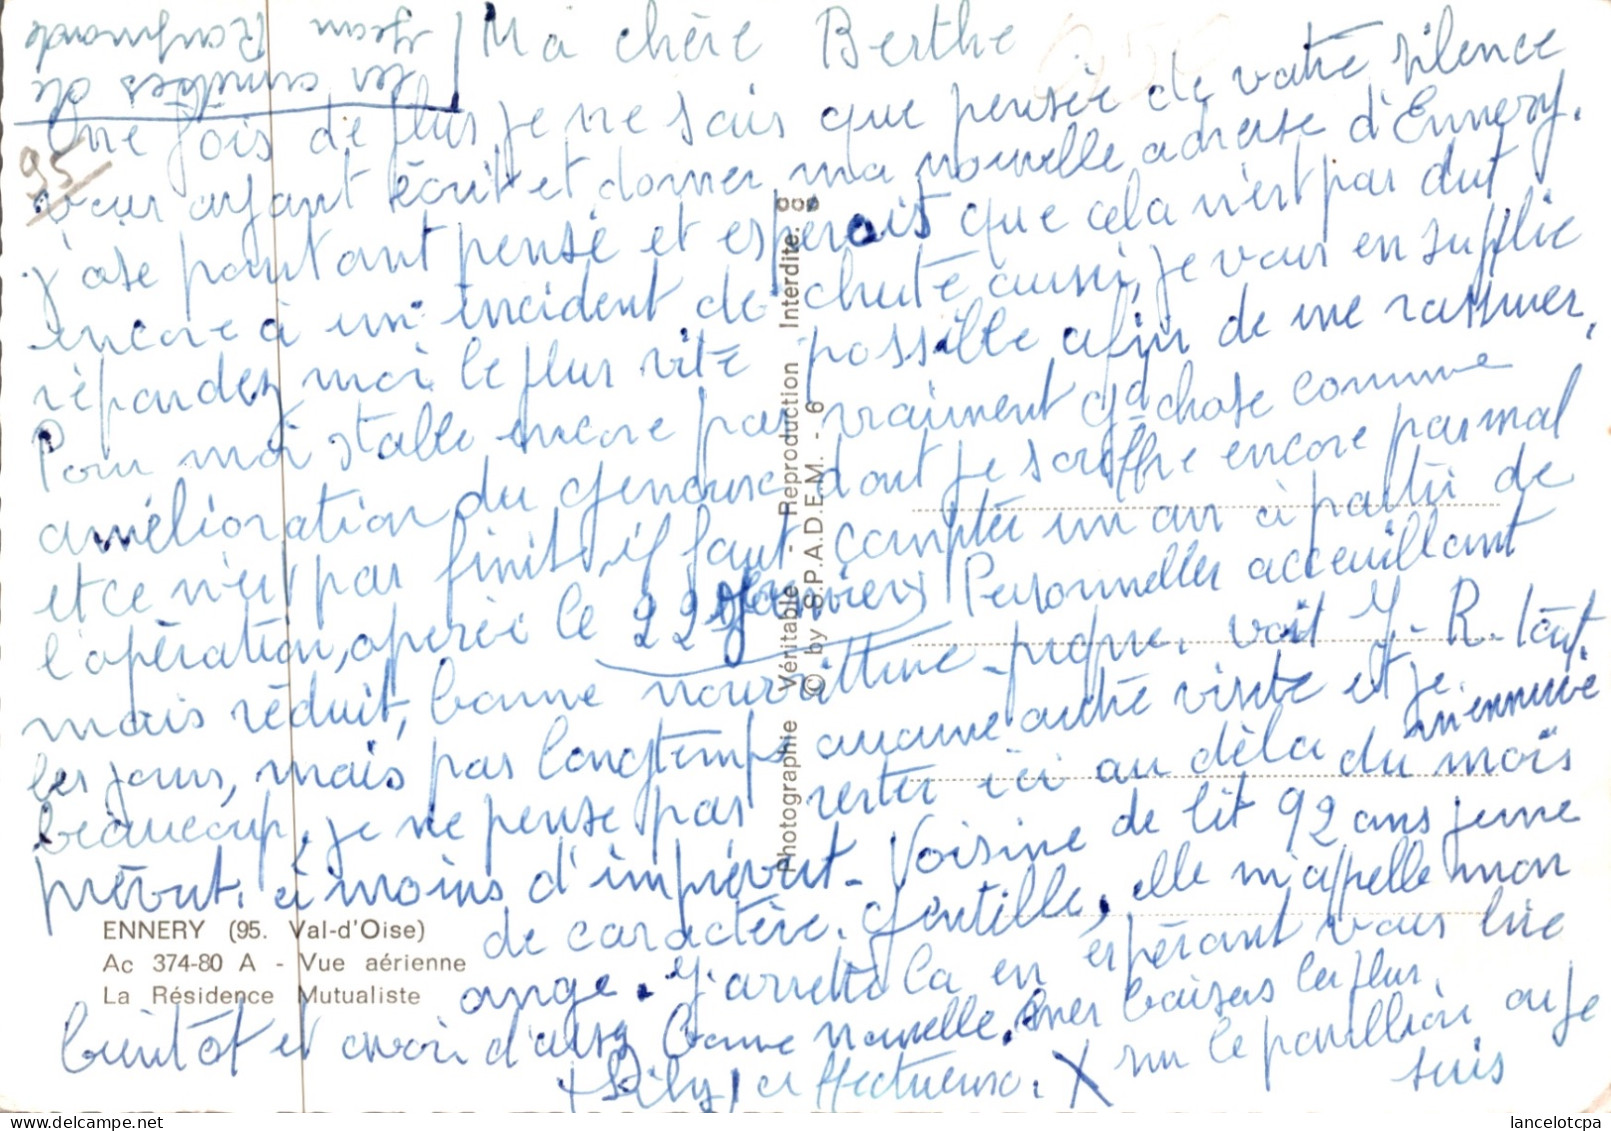 les amitiés de
Jean Raymonde
Ma chère Berthe
Une fois de plus je ne sais que pensée de votre silence
vous ayant écrit et donner ma nouvelle adresse d'Ennery.
J'ose pourtant pensé et esperais que cela n'est pas dut
encore à un incident de chute aussi, je vous en supplie
répondez moi le plus vite possible afin de me rassurer,
Pour moi stable encore pas vraiment gd chose comme
amélioration du genoux dont je souffre encore pas mal
et ce n'est pas finit, il faut compter un an à partir de
l'opération, opérée le 22 Janvier, Personnelles acceuillant
mais réduit, bonne nourritture - propre. voit J-R. tout.
les jours, mais pas longtemps aucune autre visite et je m'ennuie
beaucoup, je ne pense pas rester ici au dèla du mois
prévut. à moins d'imprévut - Voisine de lit 92 ans jeune
de caractère. Gentille, elle m'appelle mon
ange. J'arrette la en espérant vous lire
bientôt et avoir d'aussi bonne nouvelle. Mes baisers les plus
affectueux. Lily
X sur le pavillion ou je
suis
95
ENNERY (95. Val-d'Oise)
Ac 374-80 A - Vue aérienne
La Résidence Mutualiste
Photographie Véritable - Reproduction Interdite.
© by S.P.A.D.E.M. - 6
lancelotcpa